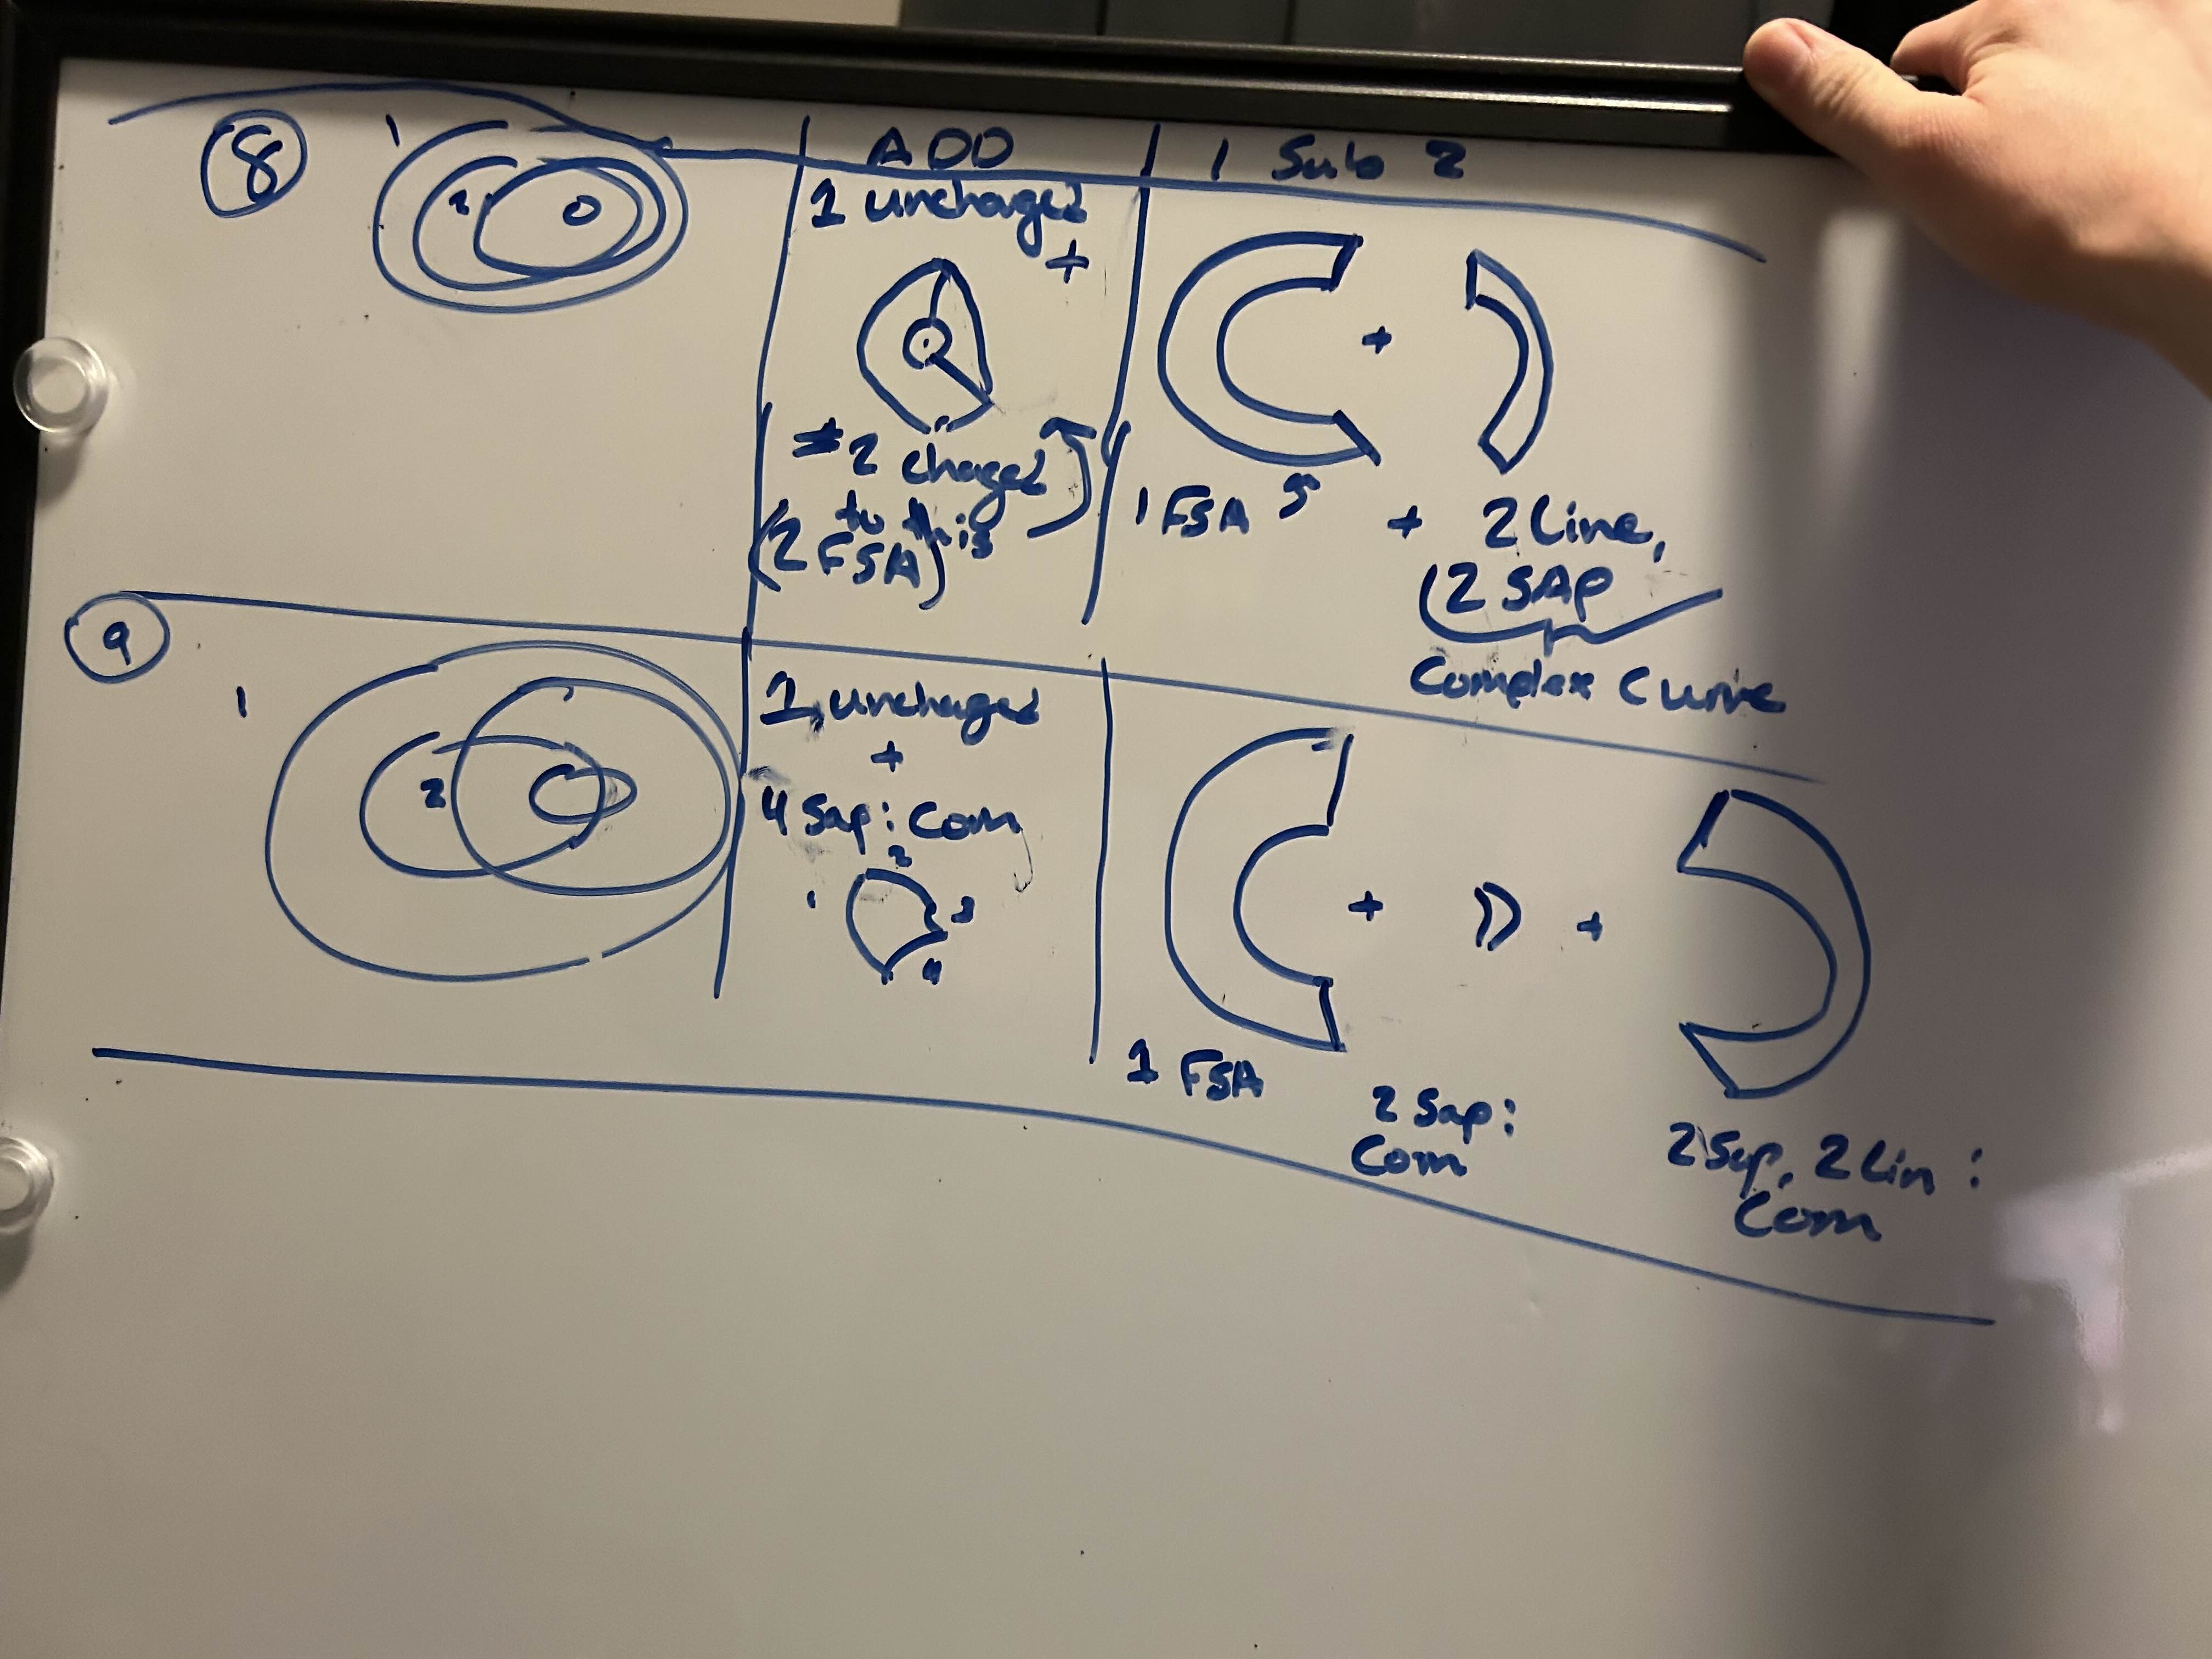 8
1
2
ADD
1 Sub 2
1 unchaged
+
≠2 chaged
to this
(2 FSA)
+
1 FSA
+ 2 Line,
(2 SAP
Complex Curve
9
1
2
1 unchaged
+
4 Sap: Com
1
2
3
4
+
+
1 FSA
2 Sap:
Com
2 Sap, 2 Lin:
Com